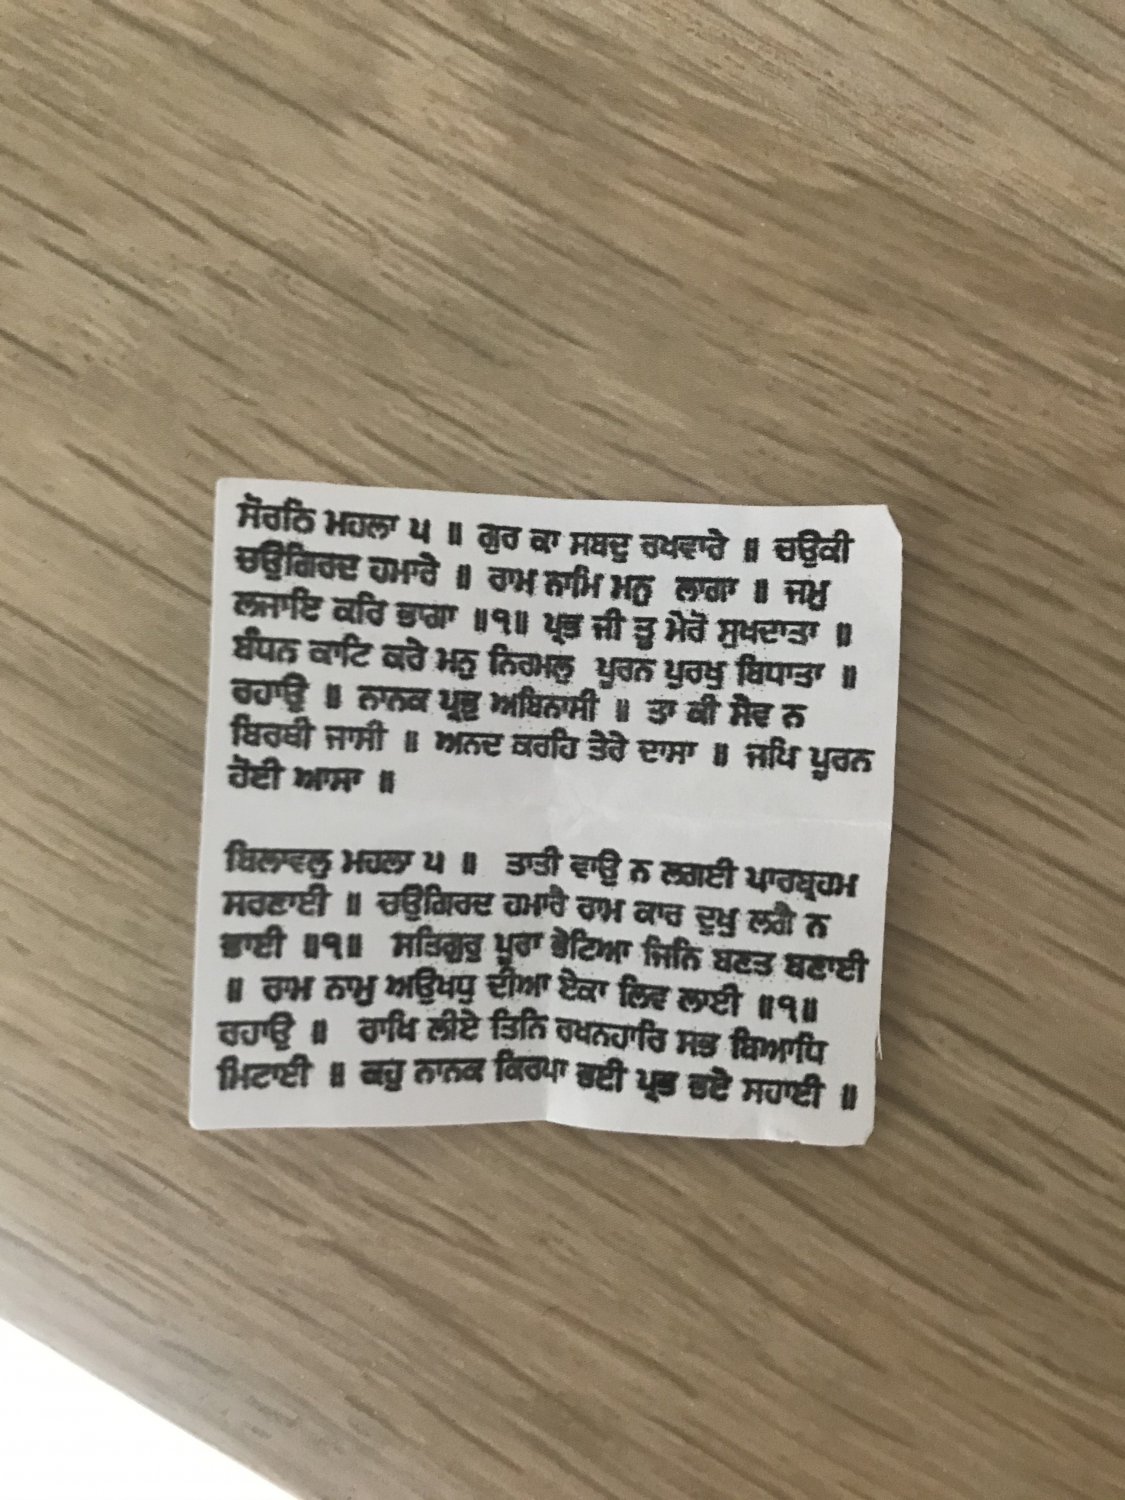 ਸੋਰਠਿ ਮਹਲਾ ੫ ॥ ਗੁਰ ਕਾ ਸਬਦੁ ਰਖਵਾਰੇ ॥ ਚਉਕੀ
ਚਉਗਿਰਦ ਹਮਾਰੇ ॥ ਰਾਮ ਨਾਮਿ ਮਨੁ ਲਾਗਾ ॥ ਜਮੁ
ਲਜਾਇ ਕਰਿ ਭਾਗਾ ॥੧॥ ਪ੍ਰਭ ਜੀ ਤੂ ਮੇਰੋ ਸੁਖਦਾਤਾ ॥
ਬੰਧਨ ਕਾਟਿ ਕਰੇ ਮਨੁ ਨਿਰਮਲੁ ਪੂਰਨ ਪੁਰਖੁ ਬਿਧਾਤਾ ॥
ਰਹਾਉ ॥ ਨਾਨਕ ਪ੍ਰਭੁ ਅਬਿਨਾਸੀ ॥ ਤਾ ਕੀ ਸੇਵ ਨ
ਬਿਰਥੀ ਜਾਸੀ ॥ ਅਨਦ ਕਰਹਿ ਤੇਰੇ ਦਾਸਾ ॥ ਜਪਿ ਪੂਰਨ
ਹੋਈ ਆਸਾ ॥
ਬਿਲਾਵਲੁ ਮਹਲਾ ੫ ॥ ਤਾਤੀ ਵਾਉ ਨ ਲਗਈ ਪਾਰਬ੍ਰਹਮ
ਸਰਣਾਈ ॥ ਚਉਗਿਰਦ ਹਮਾਰੈ ਰਾਮ ਕਾਰ ਦੁਖੁ ਲਗੈ ਨ
ਭਾਈ ॥੧॥ ਸਤਿਗੁਰੁ ਪੂਰਾ ਭੇਟਿਆ ਜਿਨਿ ਬਣਤ ਬਣਾਈ
॥ ਰਾਮ ਨਾਮੁ ਅਉਖਧੁ ਦੀਆ ਏਕਾ ਲਿਵ ਲਾਈ ॥੧॥
ਰਹਾਉ ॥ ਰਾਖਿ ਲੀਏ ਤਿਨਿ ਰਖਨਹਾਰਿ ਸਭ ਬਿਆਧਿ
ਮਿਟਾਈ ॥ ਕਹੁ ਨਾਨਕ ਕਿਰਪਾ ਭਈ ਪ੍ਰਭ ਭਏ ਸਹਾਈ ॥